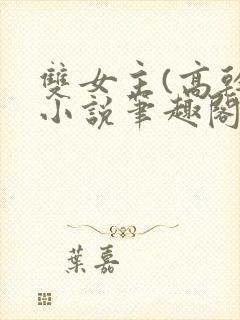 雙女主(高
小說筆趣閣
葉嘉